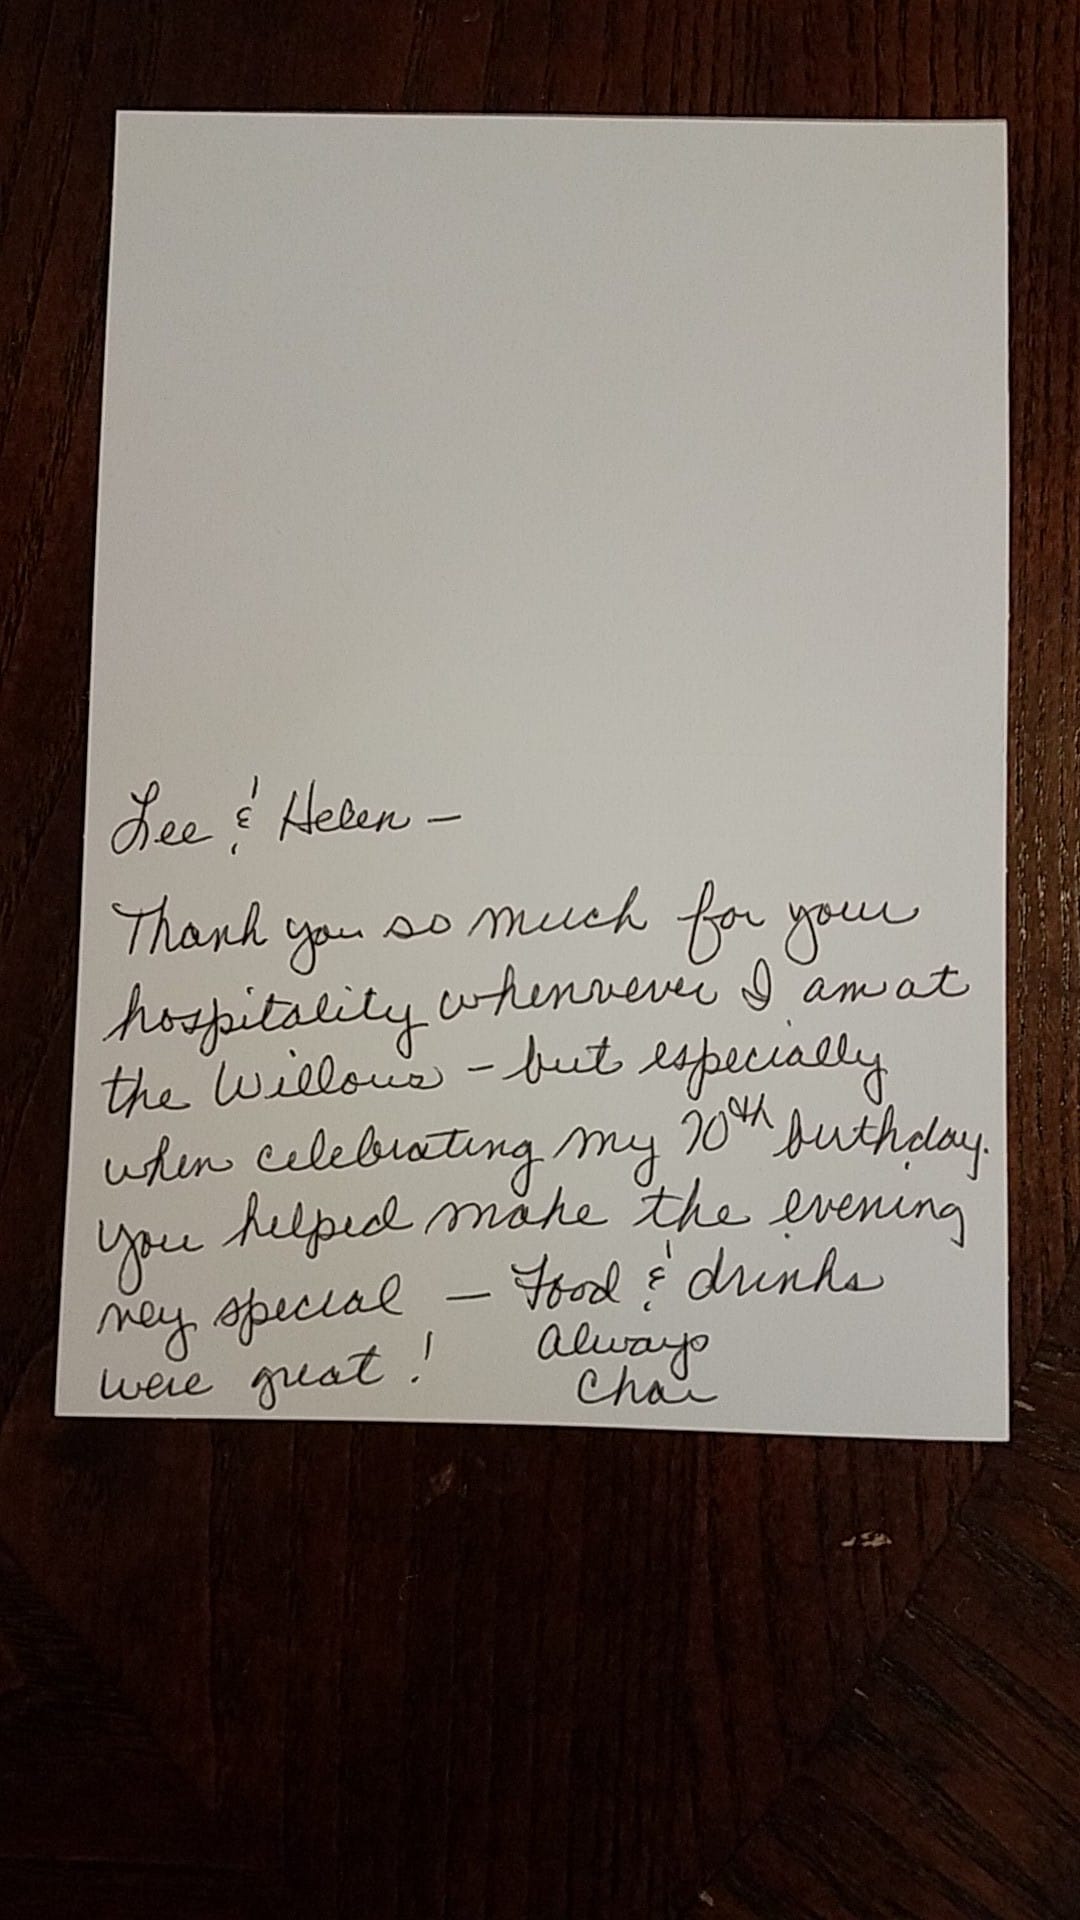 Lee & Helen —
Thank you so much for your
hospitality whenvever I am at
the Willows - but especially
when celebrating my 70th birthday.
You helped make the evening
very special — Food & drinks
were great! Always
Char